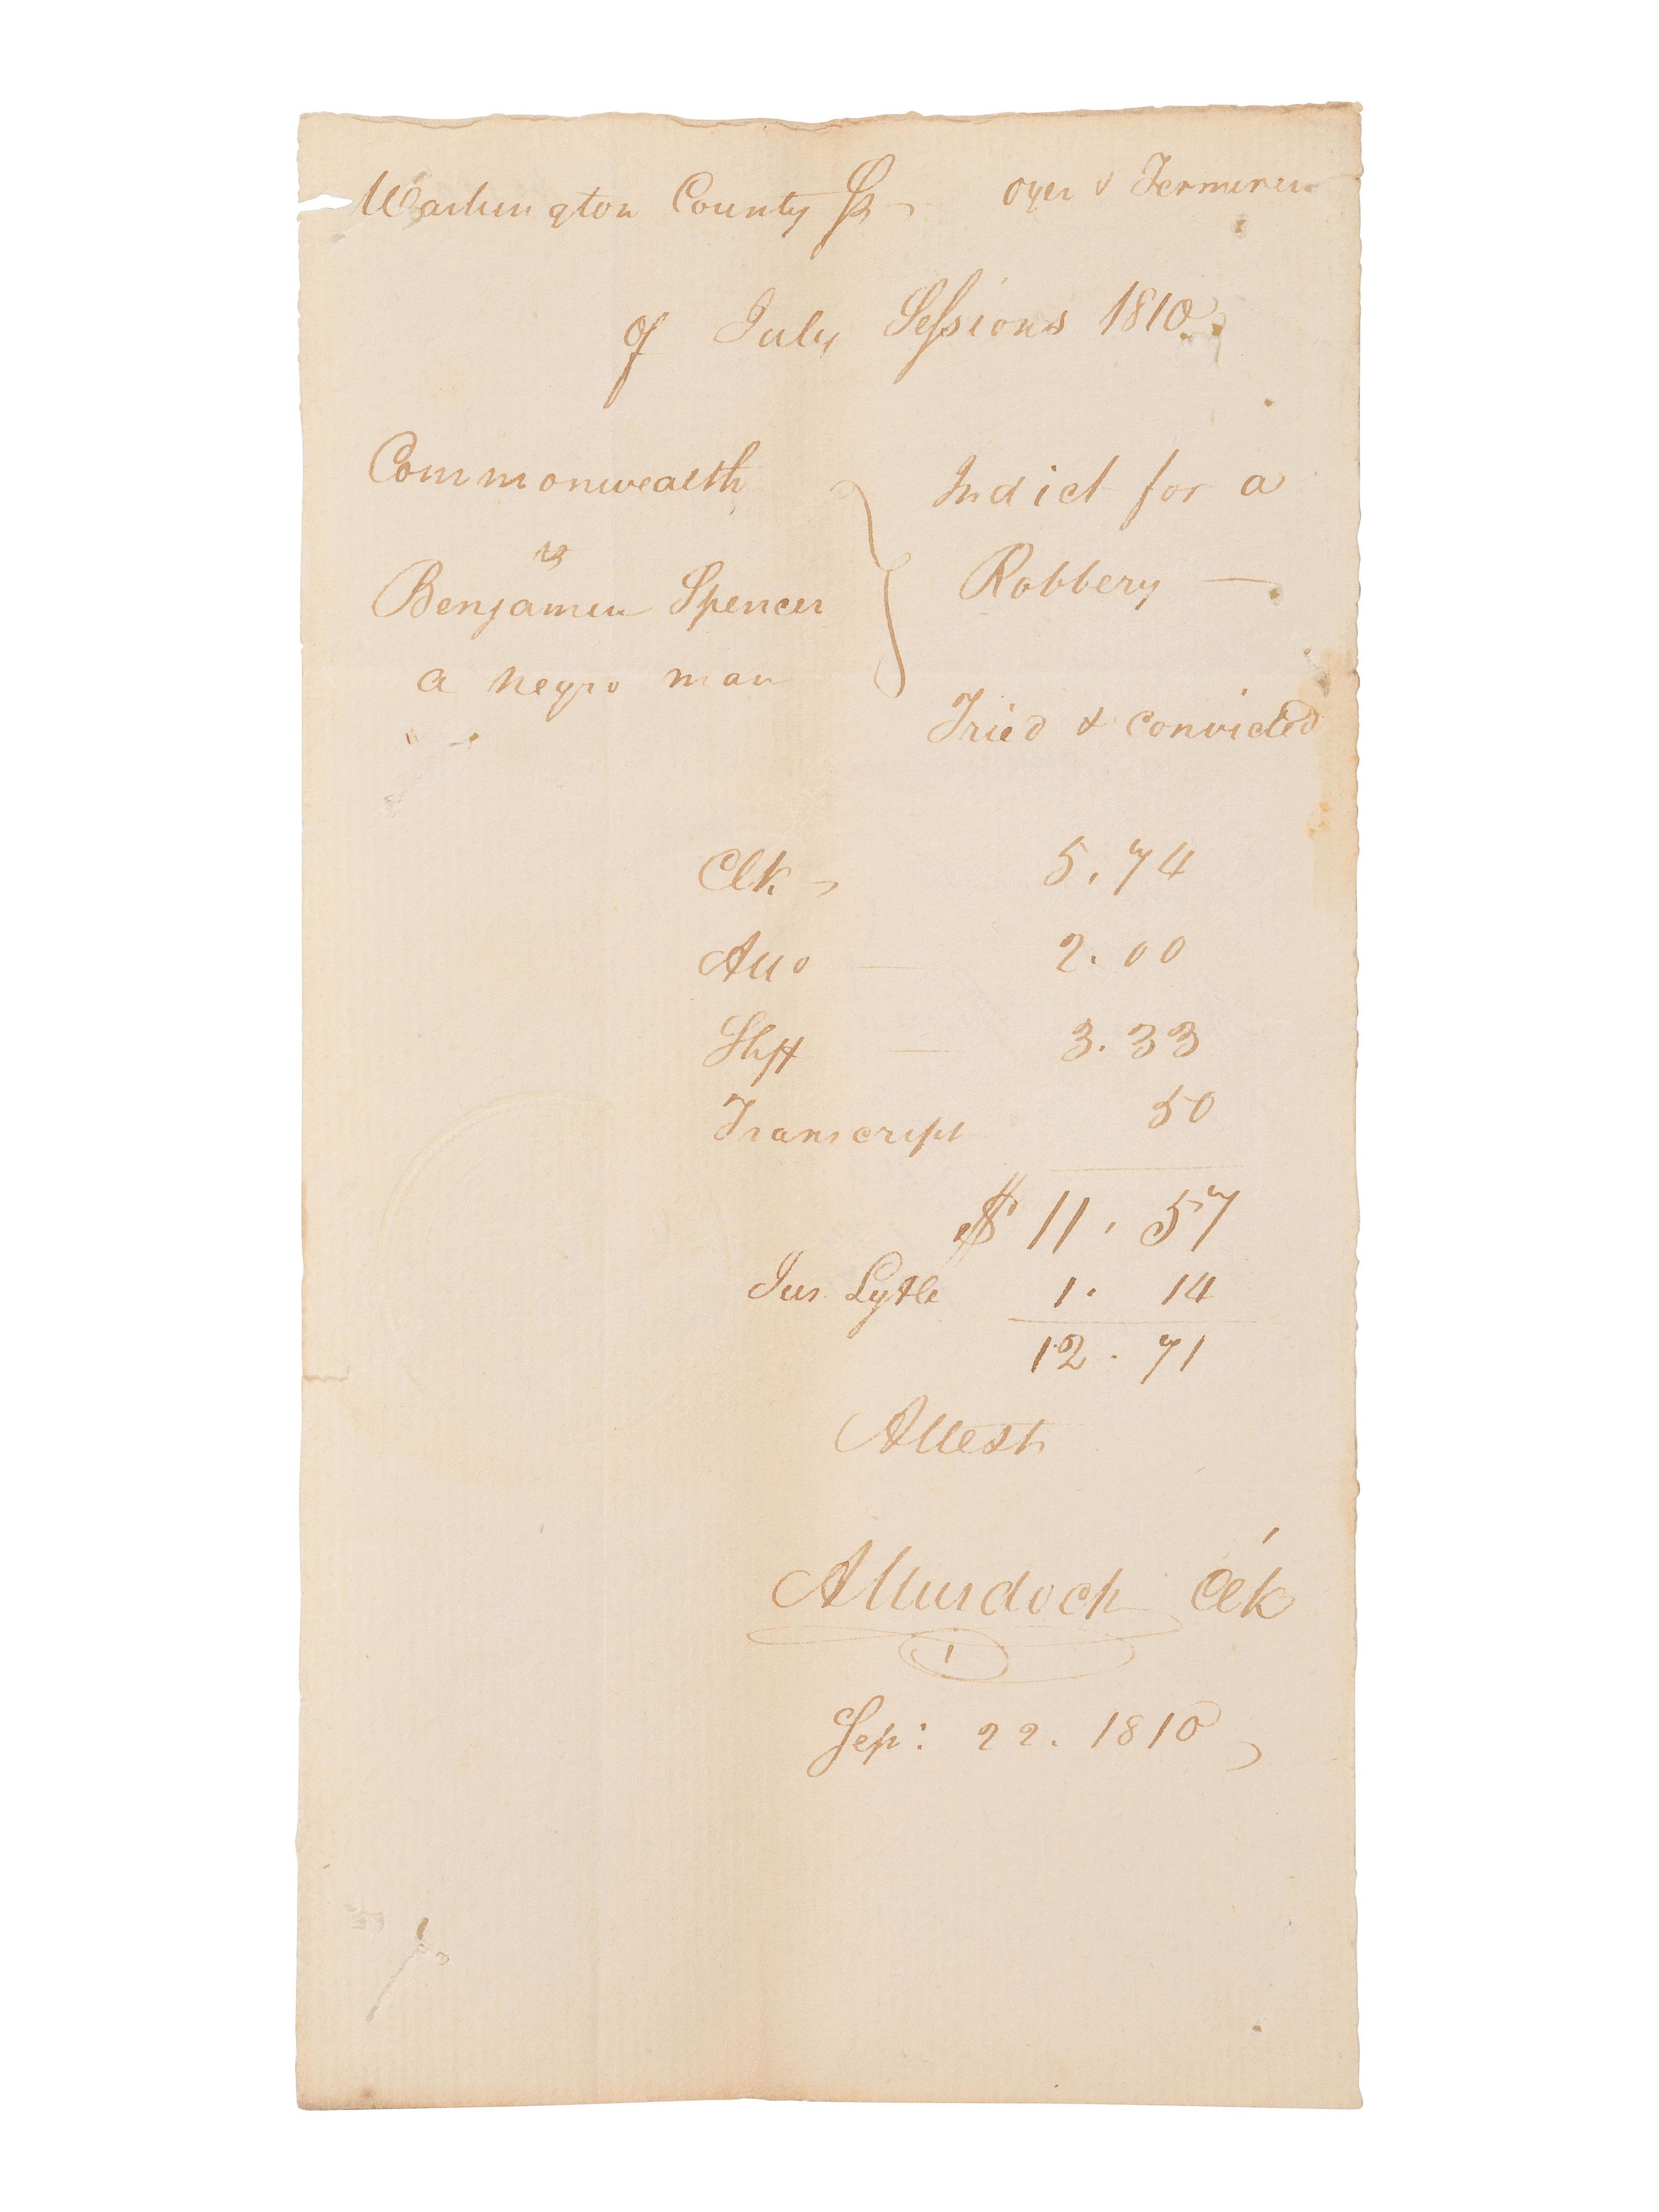 Washington County Ss Oyer & Terminer
of July Sessions 1810.
Commonwealth
vs
Benjamin Spencer
a negro man
Indict for a
Robbery —
Tried & convicted
Clk — 5.74
Atto — 2.00
Shff — 3.33
Transcript 50
$ 11.57
Jus Lytle 1.14
12.71
Attest
AMurdoch Clk
Sep: 22. 1810